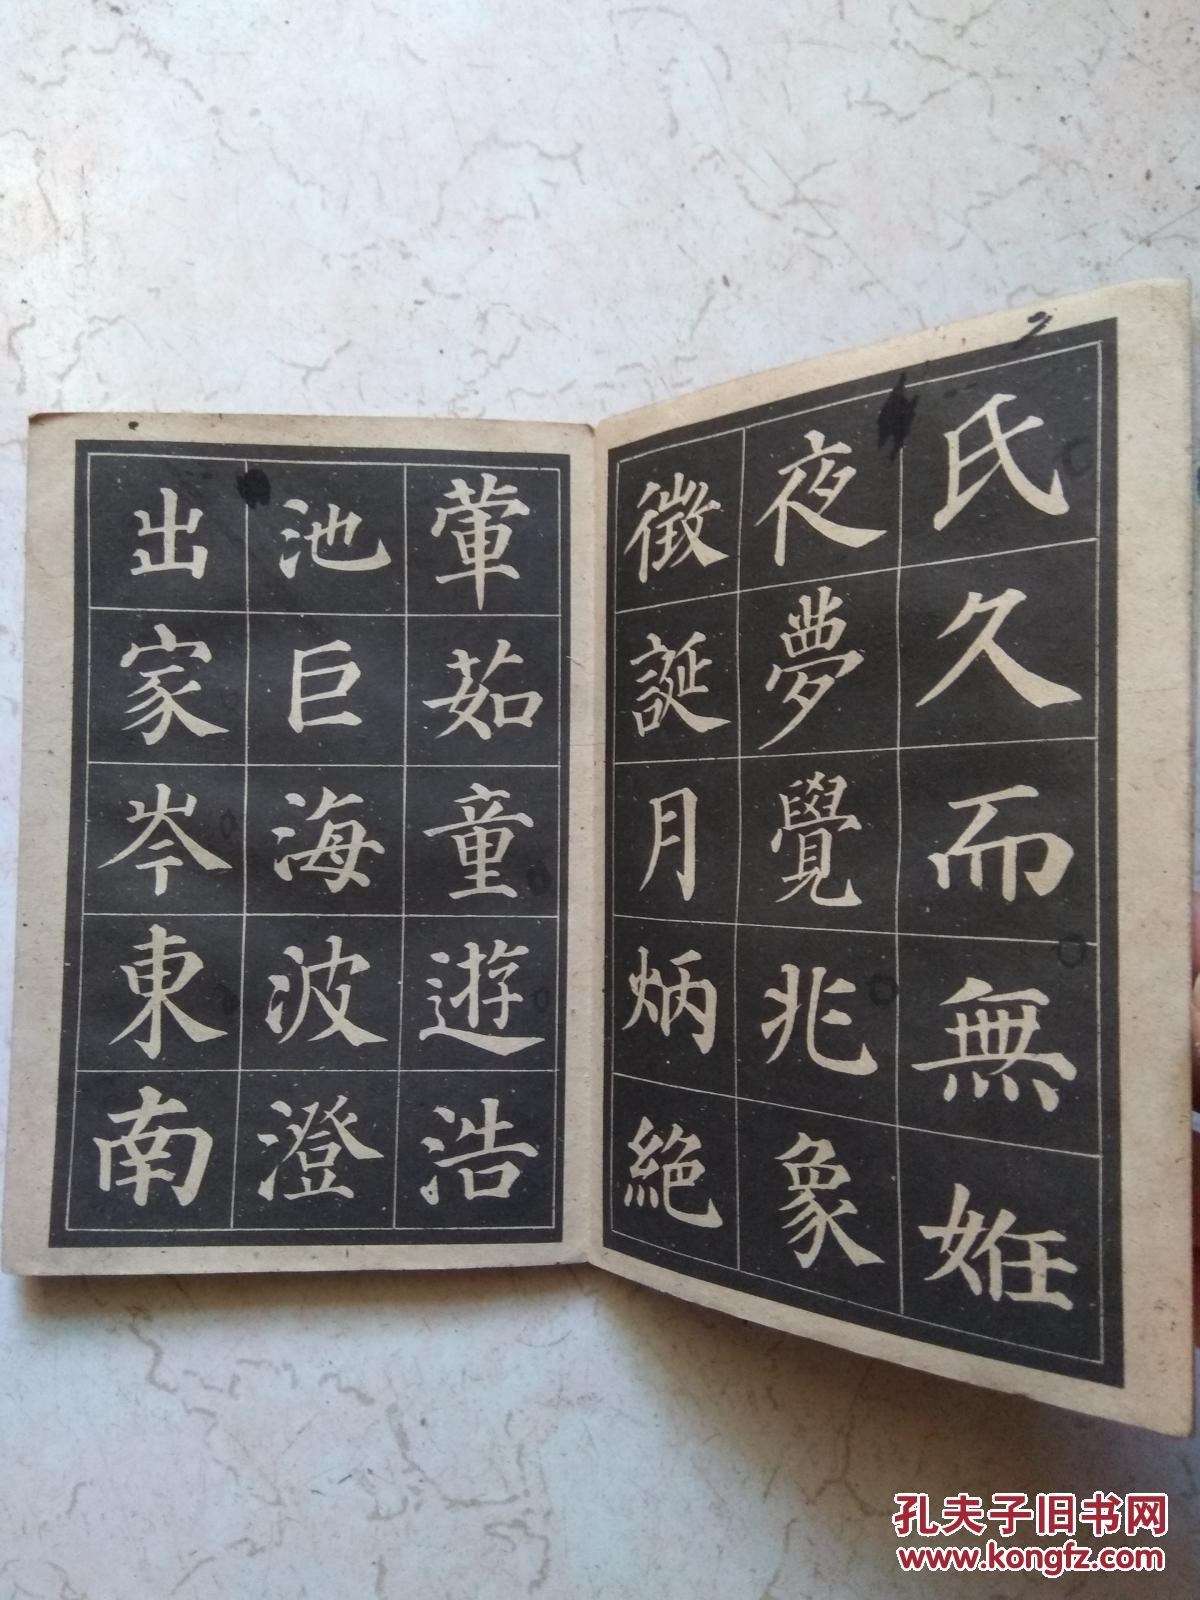 氏久而無姙
夜夢覺兆象
徵誕月炳絕
葷茹童遊浩
池巨海波澄
出家岑東南
孔夫子旧书网
www.kongfz.com